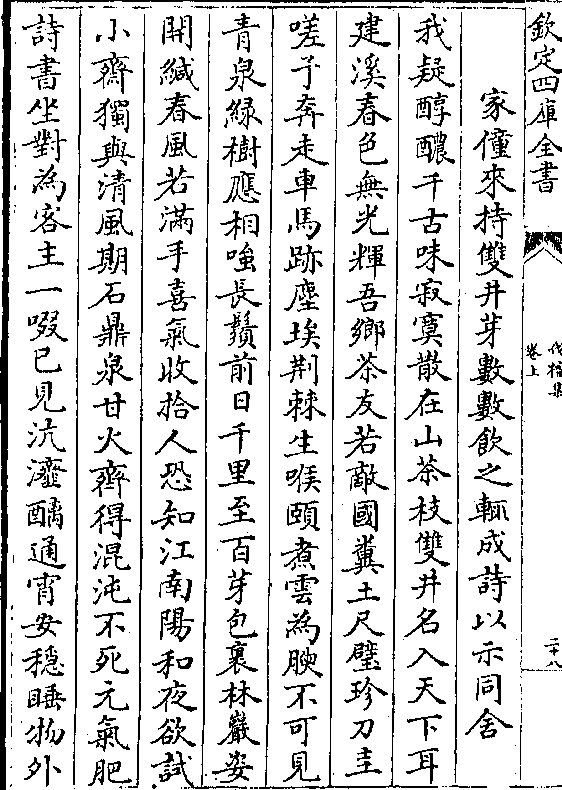 欽定四庫全書
伐檀集
卷上
二十八
家僮來持雙井芽數數飲之輒成詩以示同舍
我疑醇醲千古味寂寞散在山茶枝雙井名入天下耳
建溪春色無光輝吾鄉茶友若敵國糞土尺璧珍刀圭
嗟予奔走車馬跡塵埃荆棘生喉頤煮雲為腴不可見
青泉緑樹應相嗤長鬚前日千里至百芽包裹林巖姿
開緘春風若滿手喜氣收拾人恐知江南陽和夜欲試
小齋獨與清風期石鼎泉甘火齊得混沌不死元氣肥
詩書坐對為客主一啜已見沆瀣醨通宵安穩睡物外